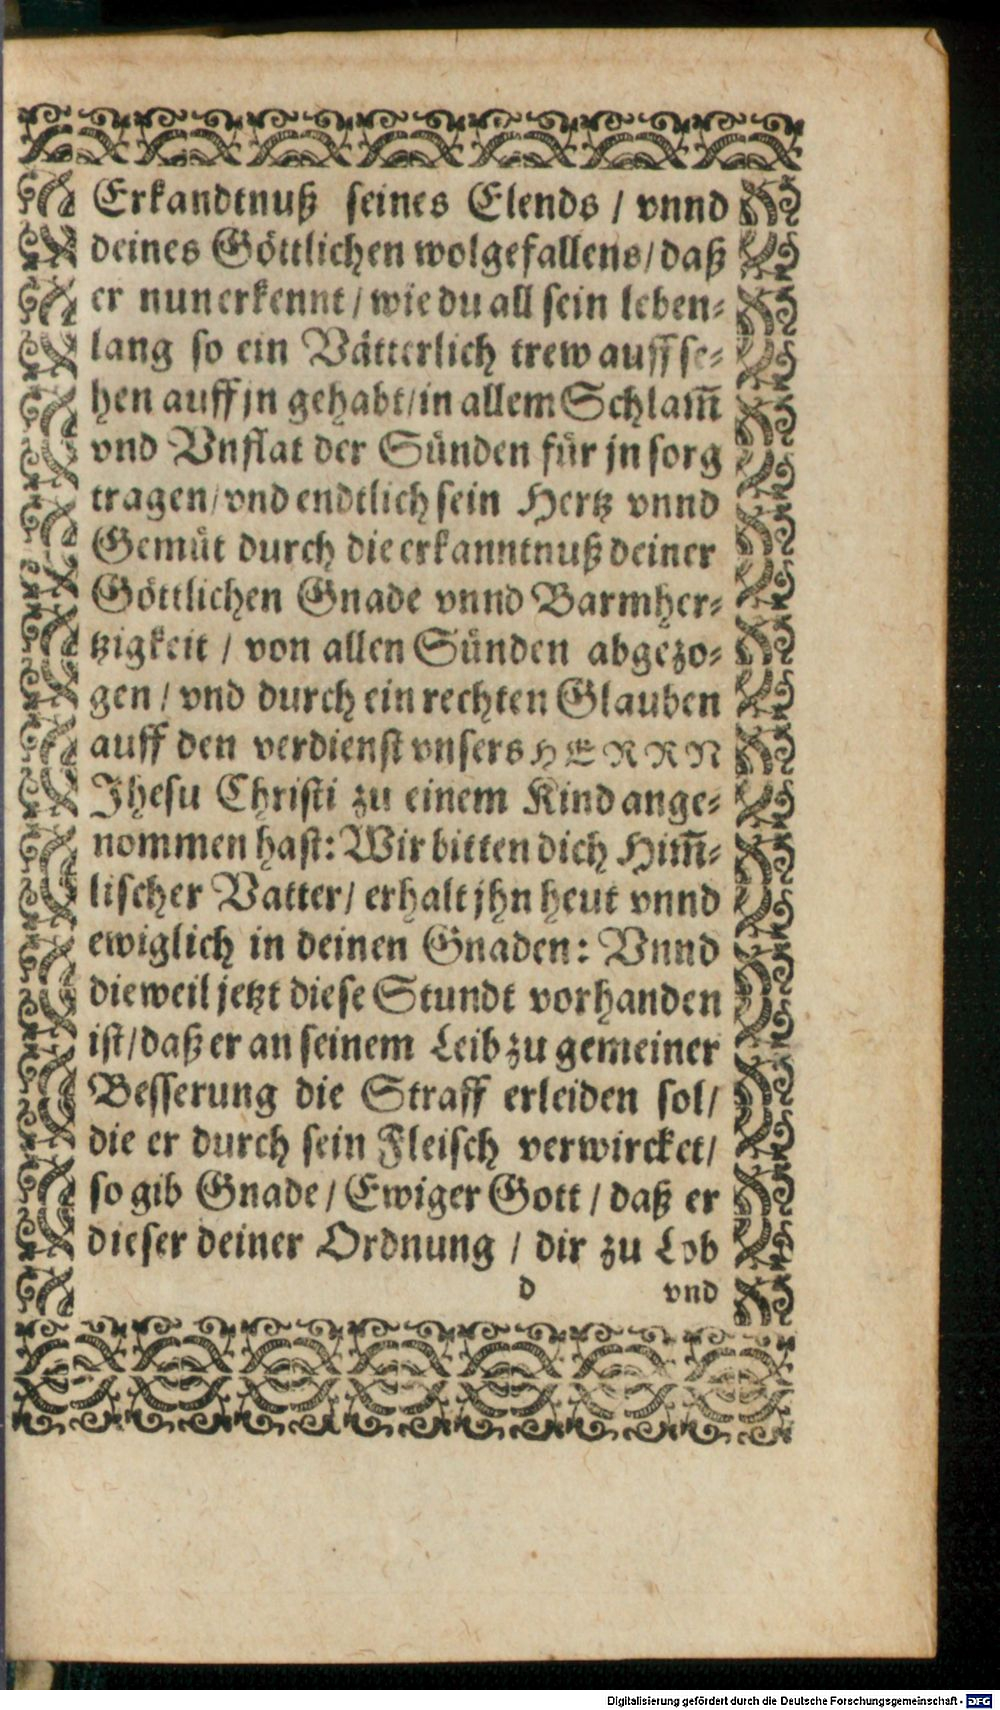 Erkandtnuß seines Elends / vnnd
deines Göttlichen wolgefallens / daß
er nun erkennt / wie du all sein leben⸗
lang so ein Vätterlich trew auff se⸗
hen auff jn gehabt / in allem Schlam̅
vnd Vnflat der Sünden für jn sorg
tragen / vnd endtlich sein Hertz vnnd
Gemüt durch die erkanntnuß deiner
Göttlichen Gnade vnnd Barmher⸗
tzigkeit / von allen Sünden abgezo⸗
gen / vnd durch ein rechten Glauben
auff den verdienst vnsers HERRN
Jhesu Christi zu einem Kind ange⸗
nommen hast: Wir bitten dich Him̅⸗
lischer Vatter / erhalt jhn heut vnnd
ewiglich in deinen Gnaden: Vnnd
dieweil jetzt diese Stundt vorhanden
ist / daß er an seinem Leib zu gemeiner
Besserung die Straff erleiden sol /
die er durch sein Fleisch verwircket /
so gib Gnade / Ewiger Gott / daß er
dieser deiner Ordnung / dir zu Lob
d vnd
Digitalisierung gefördert durch die Deutsche Forschungsgemeinschaft - DFG